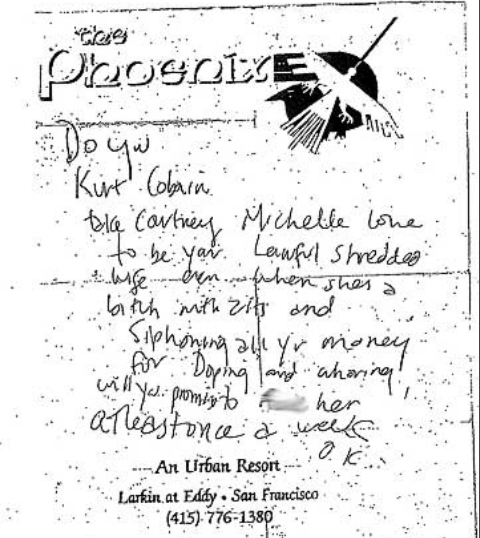 the
Phoenix
Do you
Kurt Cobain
take Courtney Michelle Love
to be your Lawful shredded
wife even when shes a
bitch with zits and
siphoning all yr money
for Doping and whoring
will you promise to her
atleastonce a week
O K
An Urban Resort
Larkin at Eddy • San Francisco
(415) 776-1380